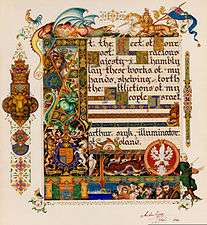 t the feet of your
most gracious
Majesty I humbly
lay these works of my
hands, shewing forth
the afflictions of my
people Israel
arthur szyk, illuminator
of Poland.